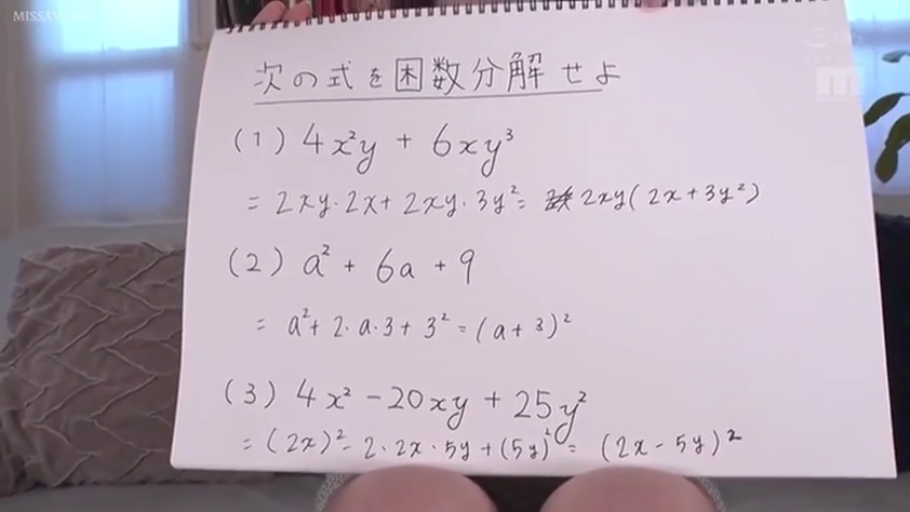 MISSAV
次の式を因数分解せよ
(1) 4x²y + 6xy³
= 2xy·2x + 2xy·3y² = 2xy(2x+3y²)
(2) a² + 6a + 9
= a² + 2·a·3 + 3² = (a+3)²
(3) 4x² - 20xy + 25y²
= (2x)² - 2·2x·5y + (5y)² = (2x-5y)²